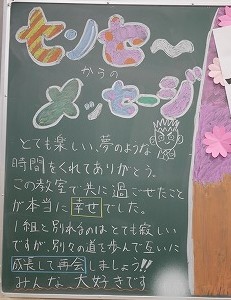 センセ〜
からの
メッセージ
とても楽しい、夢のような
時間をくれてありがとう。
この教室で共に過ごせたこと
が本当に幸せでした。
1組と別れるのはとても寂しい
ですが、別々の道を歩んで互いに
成長して再会しましょう!!
みんな、大好きです